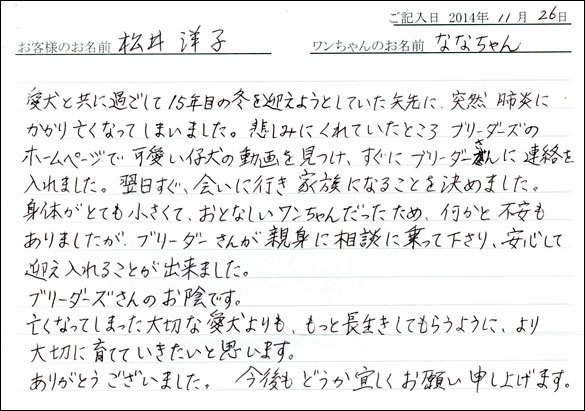 ご記入日 2014年 11月 26日
お客様のお名前 松井 洋子 ワンちゃんのお名前 ななちゃん
愛犬と共に過ごして15年目の冬を迎えようとしていた矢先に、突然 肺炎に
かかり亡くなってしまいました。悲しみにくれていたところ ブリーダーズの
ホームページで 可愛い仔犬の動画を見つけ、すぐに ブリーダーさんに 連絡を
入れました。翌日すぐ、会いに行き 家族になることを決めました。
身体がとても小さくて、おとなしいワンちゃんだったため、何かと 不安も
ありましたが、ブリーダーさんが親身に相談に乗って下さり、安心して
迎え入れることが出来ました。
ブリーダーズさんのお陰です。
亡くなってしまった大切な愛犬よりも、もっと長生きしてもらうように、より
大切に育てていきたいと思います。
ありがとうございました。 今後もどうか宜しくお願い申し上げます。